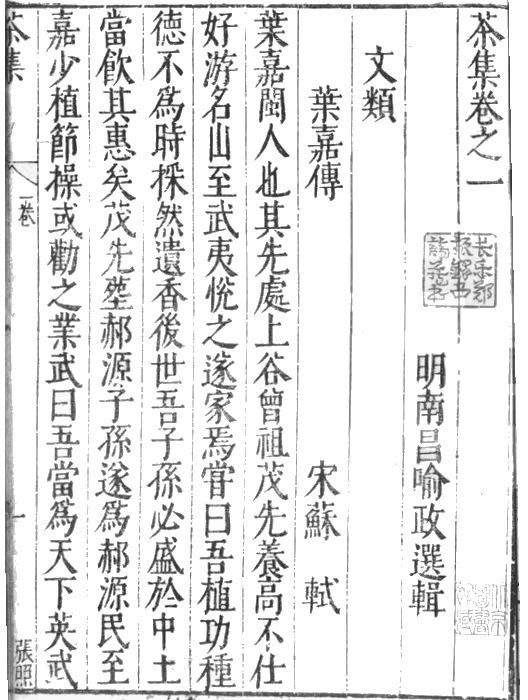 茶集卷之一
明南昌喻政選輯
文類
葉嘉傳 宋蘇 軾
葉嘉閩人也其先處上谷曾祖茂先養高不仕
好游名山至武夷悅之遂家焉嘗曰吾植功種
德不爲時採然遺香後世吾子孫必盛於中土
當飲其惠矣茂先塟郝源子孫遂爲郝源民至
嘉少植節操或勸之業武曰吾當爲天下英武
茶集
一卷
一
張照
长乐郑
振铎西
諦藏书